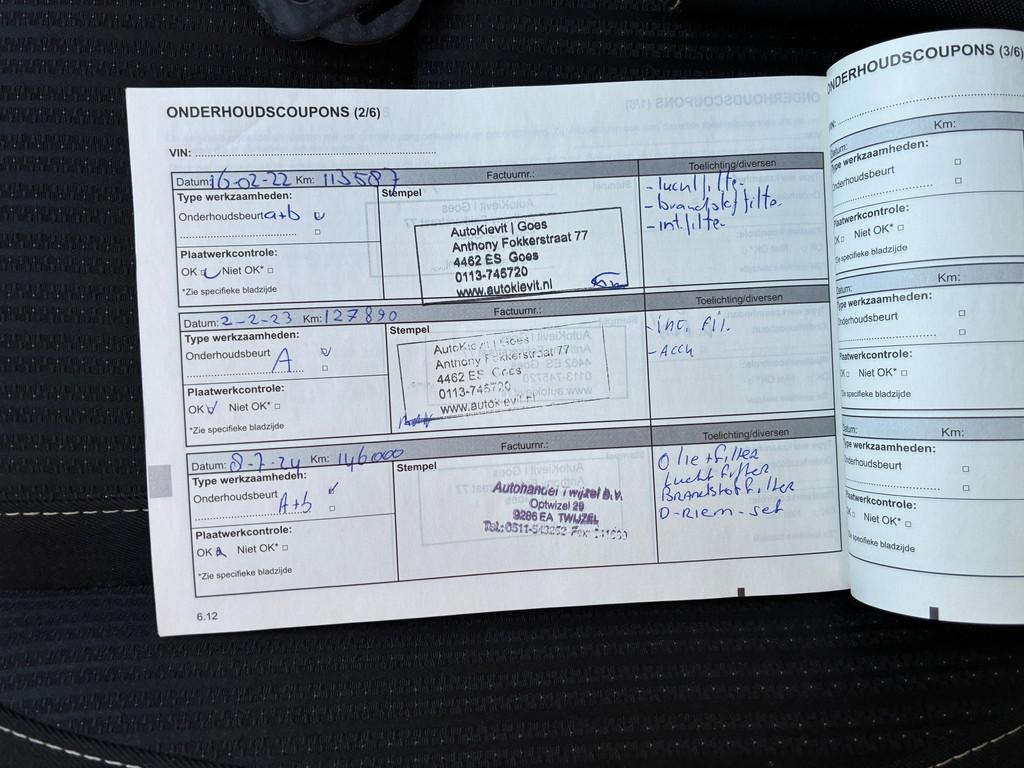 ONDERHOUDSCOUPONS (2/6)
VIN:
Datum: 16-02-22 Km: 113587 Factuurnr.: Toelichting/diversen
Type werkzaamheden: Stempel
Onderhoudsbeurt a+b
Plaatwerkcontrole:
OK Niet OK*
*Zie specifieke bladzijde
AutoKievit | Goes
Anthony Fokkerstraat 77
4462 ES Goes
0113-745720
www.autokievit.nl
- luchtfilter
- brandstoffilter
- int.filter
Datum: 2-2-23 Km: 127890 Factuurnr.: Toelichting/diversen
Type werkzaamheden: Stempel
Onderhoudsbeurt A
Plaatwerkcontrole:
OK Niet OK*
*Zie specifieke bladzijde
AutoKievit | Goes
Anthony Fokkerstraat 77
4462 ES Goes
0113-745720
www.autokievit.nl
fil.
Datum: 8-7-24 Km: 146000 Factuurnr.: Toelichting/diversen
Type werkzaamheden: Stempel
Onderhoudsbeurt A+b
Plaatwerkcontrole:
OK Niet OK*
*Zie specifieke bladzijde
Autohandel Twijzel B.V.
Optwizel 29
9286 EA TWIJZEL
Tel.: 0511-543252 Fax:
Olie+filter
Lucht filter
Brandstof filter
D-Riem-set
6.12
ONDERHOUDSCOUPONS (3/6)
VIN:
Datum: Km:
Type werkzaamheden:
Onderhoudsbeurt
Plaatwerkcontrole:
OK Niet OK*
*Zie specifieke bladzijde
Datum: Km:
Type werkzaamheden:
Onderhoudsbeurt
Plaatwerkcontrole:
OK Niet OK*
*Zie specifieke bladzijde
Datum: Km:
Type werkzaamheden:
Onderhoudsbeurt
Plaatwerkcontrole:
OK Niet OK*
*Zie specifieke bladzijde